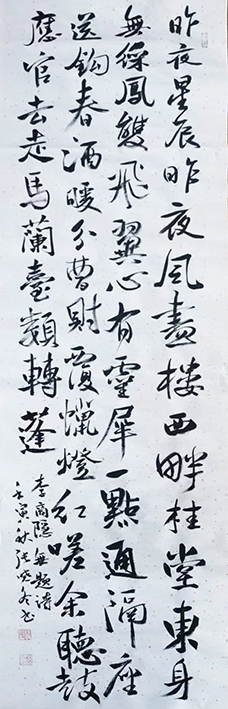 昨夜星辰昨夜風畫楼西畔桂堂東身
無綵鳳雙飛翼心有靈犀一點通隔座
送鈎春酒暖分曹射覆蠟燈紅嗟余聽鼓
應官去走馬蘭臺類轉蓬
李商隱無題詩
壬寅秋張冬書